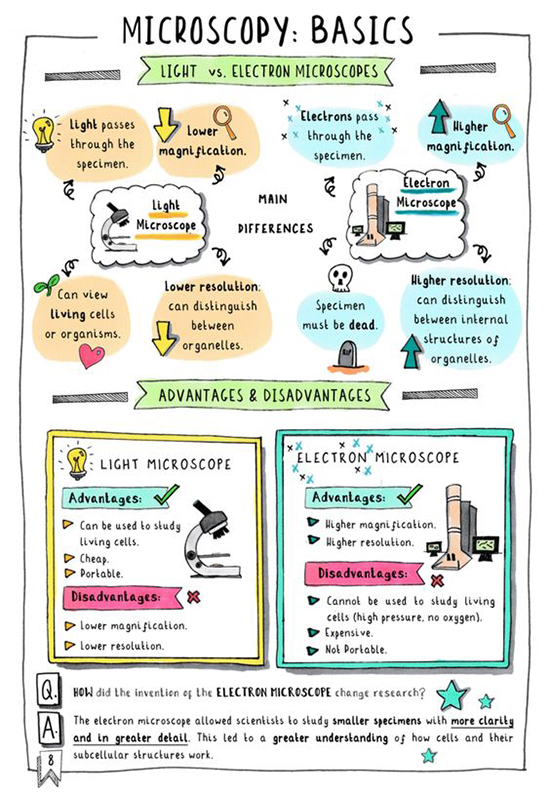 MICROSCOPY: BASICS
LIGHT vs. ELECTRON MICROSCOPES
Light passes
through the
specimen.
Lower
magnification.
Electrons pass
through the
specimen.
Higher
magnification.
Light
Microscope
MAIN
DIFFERENCES
Electron
Microscope
Can view
living cells
or organisms.
Lower resolution:
can distinguish
between
organelles.
Specimen
must be dead.
Higher resolution:
can distinguish
between internal
structures of
organelles.
ADVANTAGES & DISADVANTAGES
LIGHT MICROSCOPE
Advantages:
Can be used to study
living cells.
Cheap.
Portable.
Disadvantages:
Lower magnification.
Lower resolution.
ELECTRON MICROSCOPE
Advantages:
Higher magnification.
Higher resolution.
Disadvantages:
Cannot be used to study living
cells (high pressure, no oxygen).
Expensive.
Not Portable.
Q. HOW did the invention of the ELECTRON MICROSCOPE change research?
A. The electron microscope allowed scientists to study smaller specimens with more clarity
and in greater detail. This led to a greater understanding of how cells and their
subcellular structures work.
8